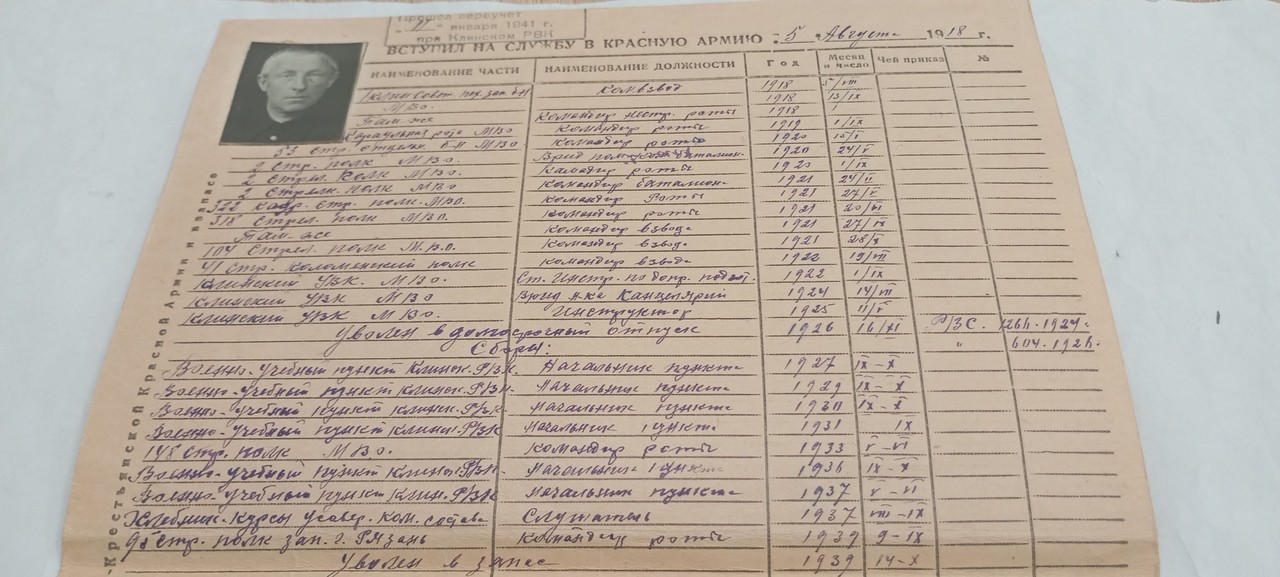 Прошел переучет
"11" января 1941 г.
при Клинском РВК
ВСТУПИЛ НА СЛУЖБУ В КРАСНУЮ АРМИЮ: 5 Августа 1918 г.
НАИМЕНОВАНИЕ ЧАСТИ НАИМЕНОВАНИЕ ДОЛЖНОСТИ Год Месяц и число Чей приказ №
зап. б-н комвзвод 1918 5/VIII
МВО. 1918 13/IX
Там-же Командир роты 1918
Караульная рота МВО Командир роты 1919 1/IX
53 стр. МВО. Командир роты 1920
2 Стр. полк МВО. Врид 1920 24/V
2 Стрел. полк МВО. Командир роты 1920 1/IX
2 Стрелк. полк МВО. Командир баталион. 1921 24/II
322 кадр. стр. полк. МВО. Командир роты 1921 27/V
318 стрел. полк МВО. Командир роты 1921 20/VI
Там-же Командир взвода 1921 27/IX
104 Стрел. полк М.В.О. Командир взвода 1921 28/X
41 стр. Коломенский полк Командир взвода 1922 19/VIII
Клинский УВК. МВО. Ст. Инстр. по допр. подгот. 1922 1/IX
Клинский УВК МВО Канцелярий 1924 14/VII
Клинский УВК МВО. Инструктор 1925 11/V
Уволен в долгосрочный отпуск 1926 16/XI РВС. 1924.
Сборы: " 604. 1926.
Военно-учебный пункт Клинск. РВК. Начальник пункта 1927 IX-X
Военно-учебный пункт Клинск. РВК. Начальник пункта 1929 IX-X
Военно-учебный пункт Клинск. РВК. Начальник пункта 1930 IX-X
Военно-учебный пункт Клинск. РВК Начальник пункта 1931 IX
148 стр. полк МВО. Командир роты 1933 V-VI
Военно-учебный пункт Клинск. РВК. Начальник пункта 1936 IX-X
Военно-учебный пункт Клин. РВК Начальник пункта 1937 V-VI
Хлебник. курсы усовер. ком. состава Слушатель 1937 VIII-IX
стр. полк зап. г. Рязань Командир роты 1939 9-IX
Уволен в запас 1939 14-X
-Крестьянской Красной Армии и в запасе